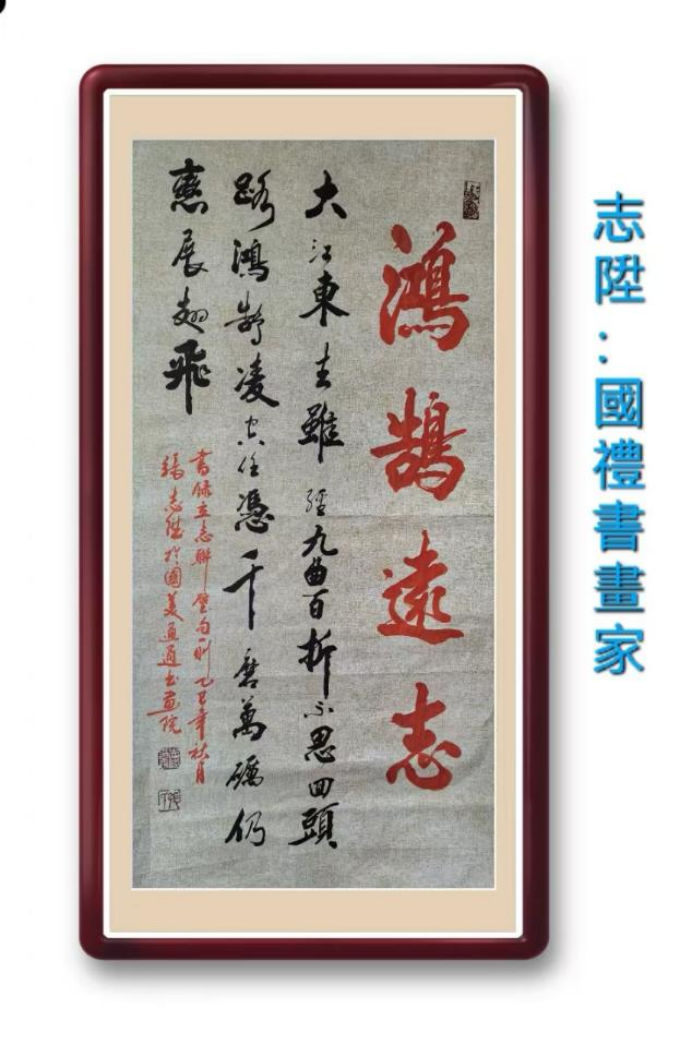 鴻鵠遠志
大江東去雖經九曲百折不思回頭
路鴻鵠凌空任憑千磨萬礪仍
憲展翅飛
書錄立志聯璧句則乙巳年秋月
張志陞於國美通通書畫院
志陞：國禮書畫家